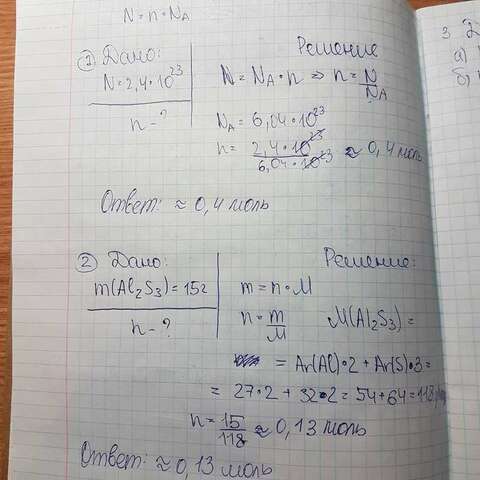 N = n · NA
① Дано:
N = 2,4 · 10²³
n - ?
Решение
N = NA · n => n = N/NA
NA = 6,04 · 10²³
n = 2,4 · 10²³ / 6,04 · 10²³ ≈ 0,4 моль
Ответ: ≈ 0,4 моль
② Дано:
m(Al₂S₃) = 15г
n - ?
Решение:
m = n · M
n = m/M M(Al₂S₃) =
= Ar(Al) · 2 + Ar(S) · 3 =
= 27 · 2 + 32 · 2 = 54 + 64 = 118
n = 15/118 ≈ 0,13 моль
Ответ: ≈ 0,13 моль
3
а)
б)